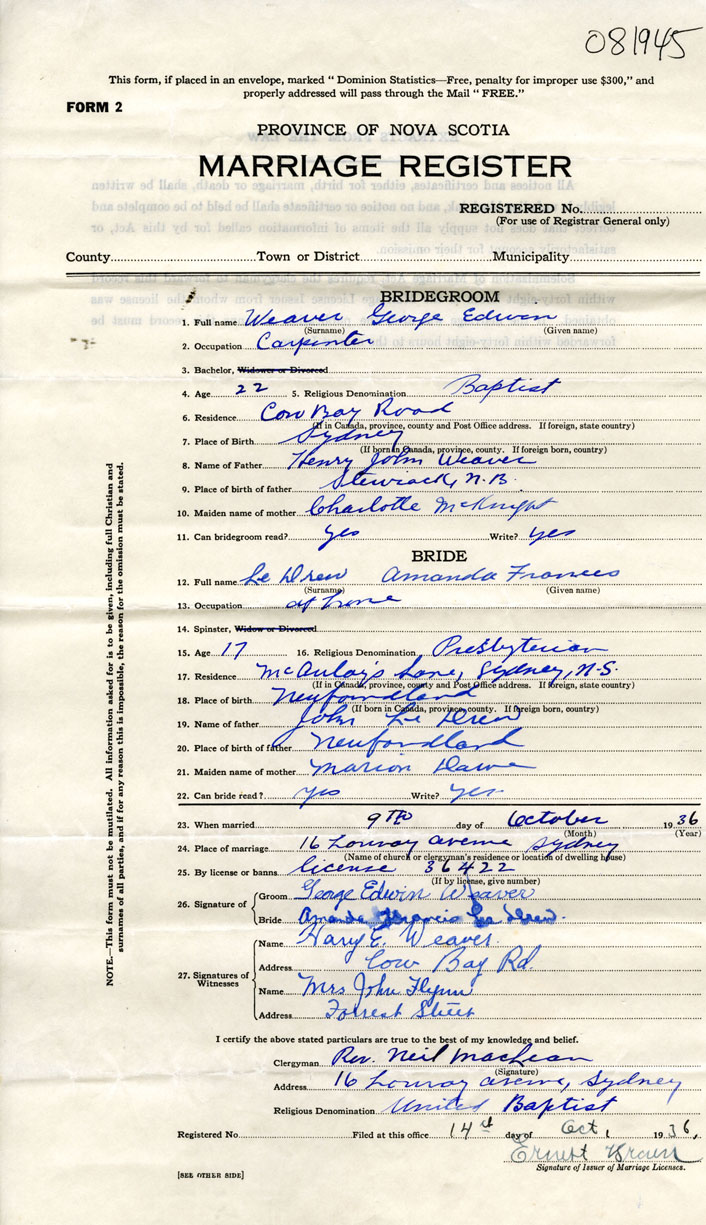 081945
This form, if placed in an envelope, marked “ Dominion Statistics—Free, penalty for improper use $300,” and
properly addressed will pass through the Mail “ FREE.”
FORM 2
PROVINCE OF NOVA SCOTIA
MARRIAGE REGISTER
REGISTERED No.
(For use of Registrar General only)
County Town or District Municipality
BRIDEGROOM
1. Full name Weaver George Edwin
(Surname) (Given name)
2. Occupation Carpenter
3. Bachelor, Widower or Divorced
4. Age 22 5. Religious Denomination Baptist
6. Residence Cow Bay Road
(If in Canada, province, county and Post Office address. If foreign, state country)
7. Place of Birth Sydney
(If born in Canada, province, county. If foreign born, country)
8. Name of Father Henry John Weaver
9. Place of birth of father N.B.
10. Maiden name of mother Charlotte McKnight
11. Can bridegroom read? yes Write? yes
BRIDE
12. Full name Le Drew Amanda Frances
(Surname) (Given name)
13. Occupation at home
14. Spinster, Widow or Divorced
15. Age 17 16. Religious Denomination Presbyterian
17. Residence McAulay's Lane, Sydney, N.S.
(If in Canada, province, county and Post Office address. If foreign, state country)
18. Place of birth Newfoundland
(If born in Canada, province, county. If foreign born, country)
19. Name of father John Le Drew
20. Place of birth of father Newfoundland
21. Maiden name of mother Marion Dawe
22. Can bride read? yes Write? yes
23. When married 9TH day of October 1936
(Month) (Year)
24. Place of marriage 16 avenue Sydney
(Name of church or clergyman's residence or location of dwelling house)
25. By license or banns license 36422
(If by license, give number)
26. Signature of Groom George Edwin Weaver
Bride Amanda Francis Le Drew.
27. Signatures of Witnesses Name Harry E. Weaver.
Address Cow Bay Rd.
Name Mrs John Flynn
Address Forrest Street
I certify the above stated particulars are true to the best of my knowledge and belief.
Clergyman Rev. Neil MacLean
(Signature)
Address 16 avenue, Sydney
Religious Denomination United Baptist
Registered No. Filed at this office 14th day of Oct, 1936,
Ernest
Signature of Issuer of Marriage Licenses.
[SEE OTHER SIDE]
NOTE.—This form must not be mutilated. All information asked for is to be given, including full Christian and
surnames of all parties, and if for any reason this is impossible, the reason for the omission must be stated.